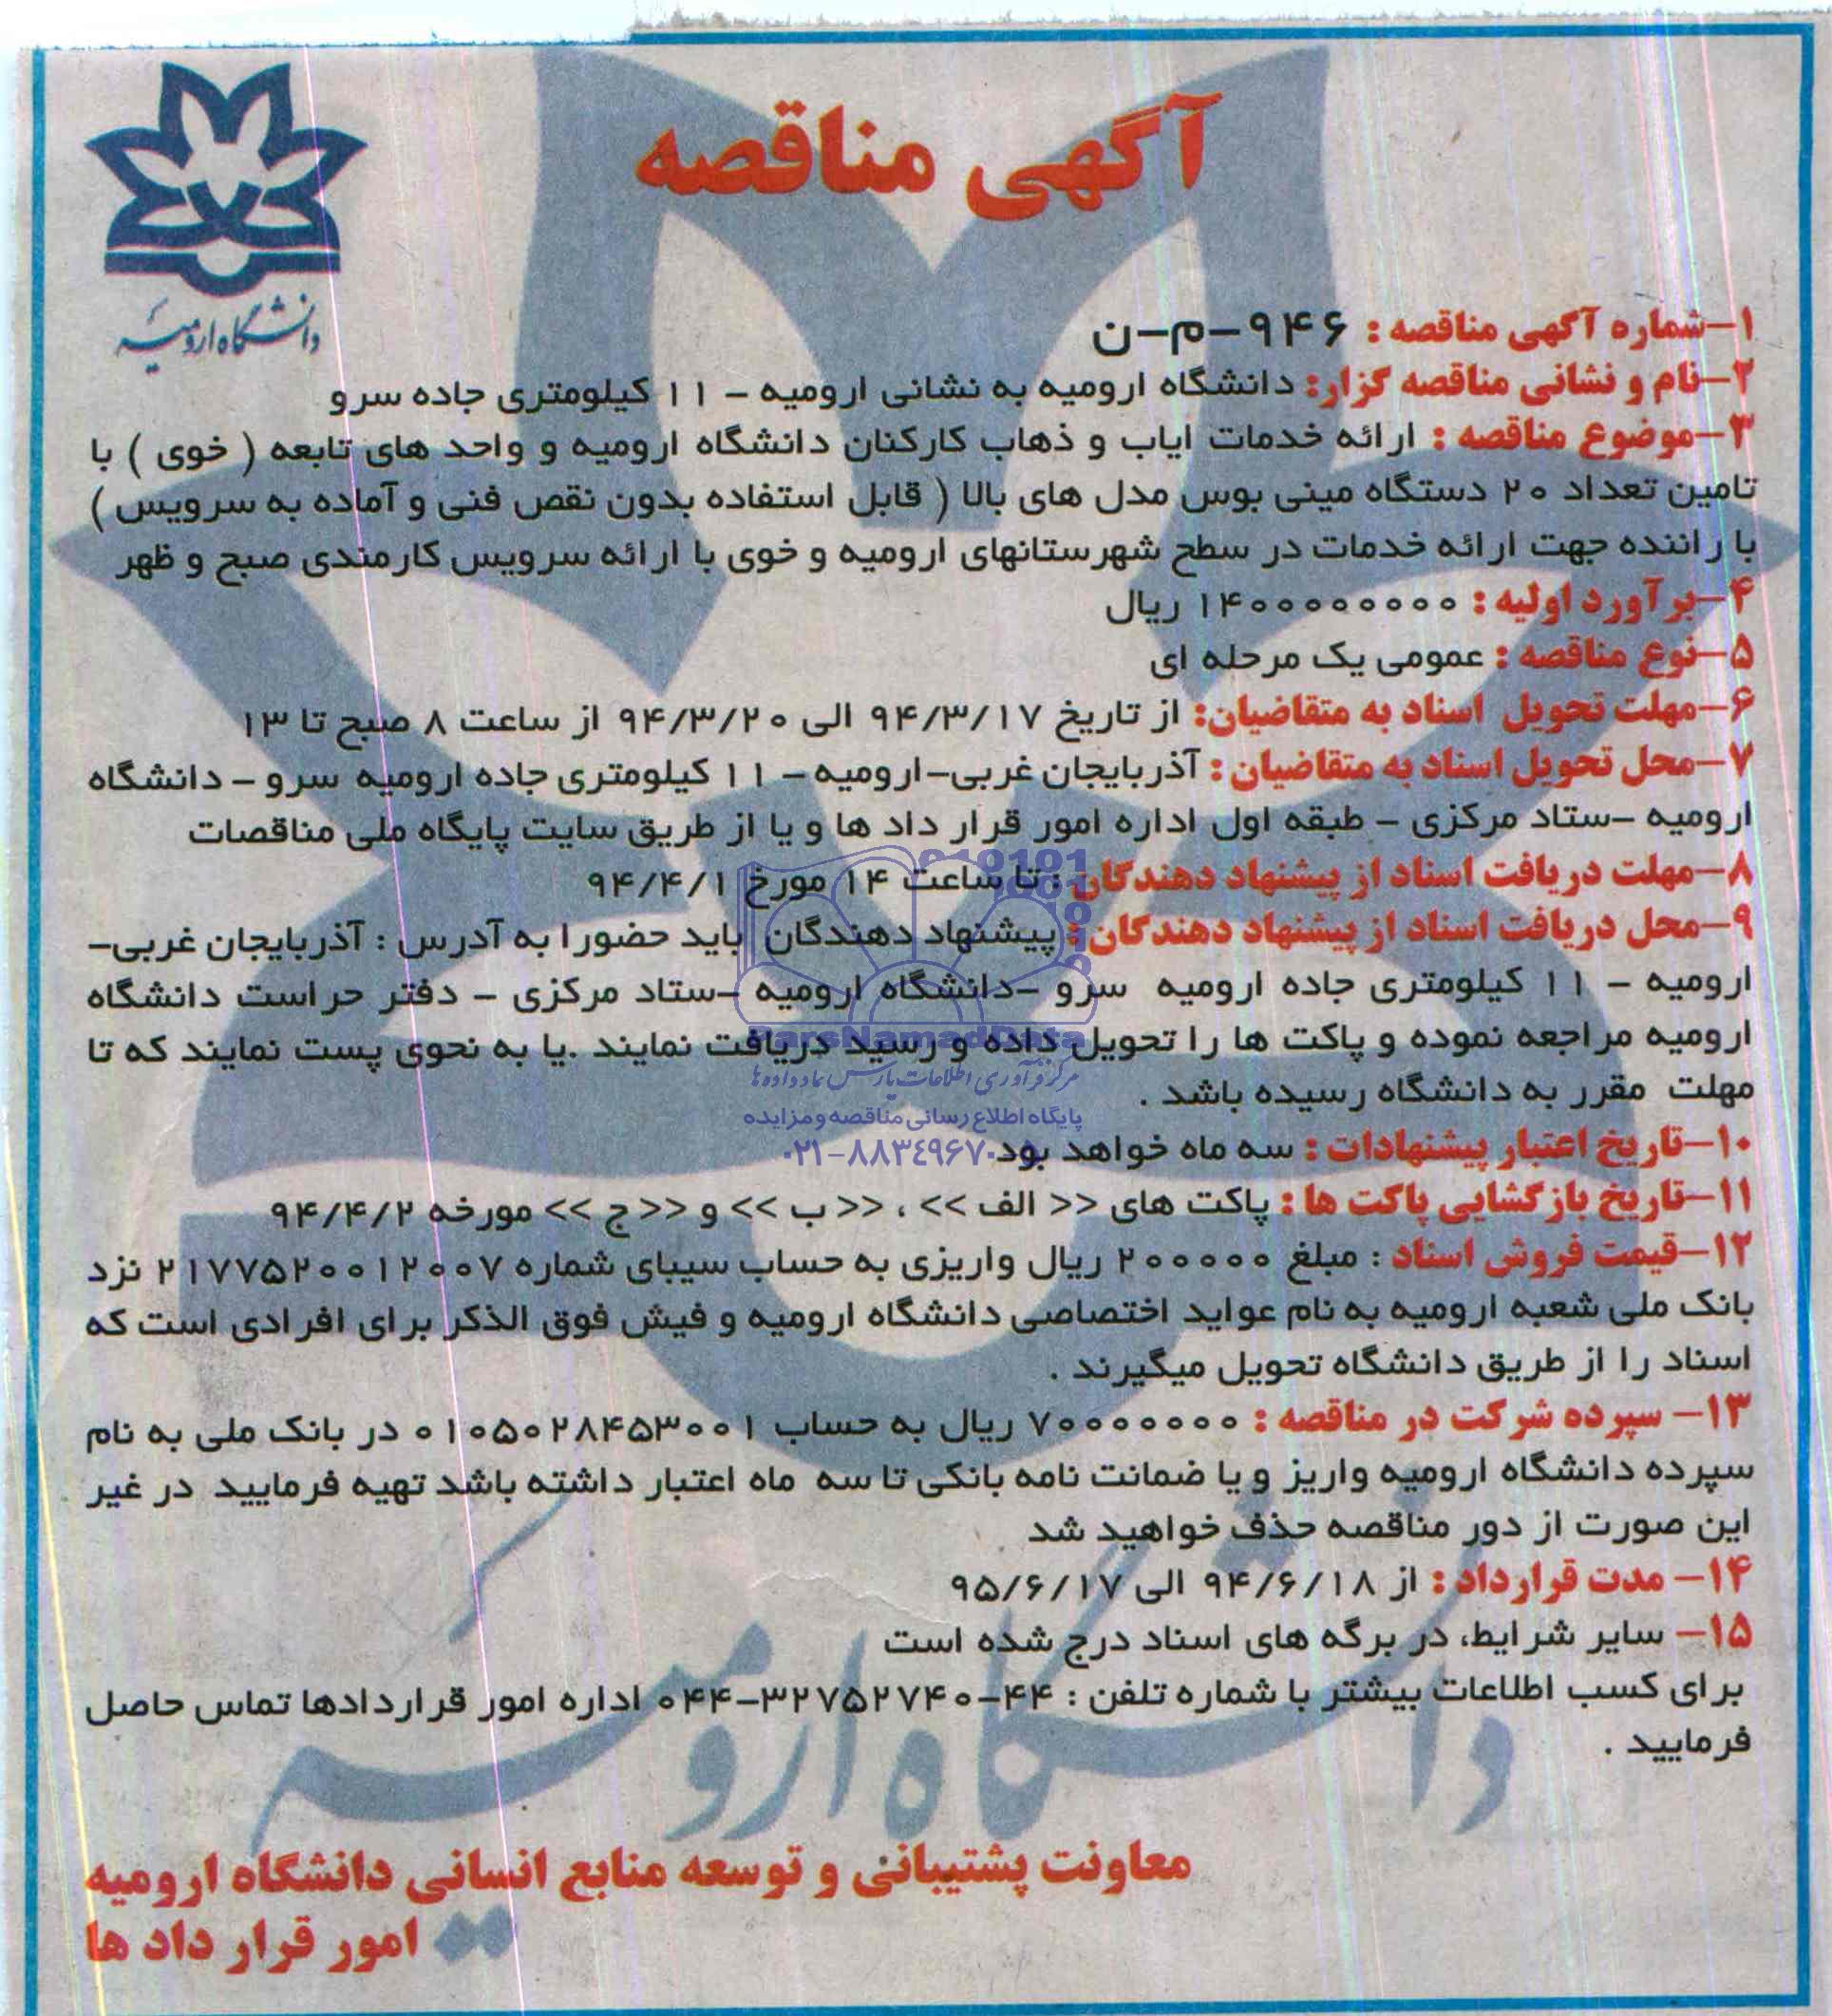 آگهی مناقصه
دانشگاه ارومیه
۱-شماره آگهی مناقصه : ۹۴۶-م-ن
۲-نام و نشانی مناقصه گزار: دانشگاه ارومیه به نشانی ارومیه - ۱۱ کیلومتری جاده سرو
۳-موضوع مناقصه : ارائه خدمات ایاب و ذهاب کارکنان دانشگاه ارومیه و واحد های تابعه ( خوی ) با
تامین تعداد ۲۰ دستگاه مینی بوس مدل های بالا ( قابل استفاده بدون نقص فنی و آماده به سرویس )
با راننده جهت ارائه خدمات در سطح شهرستانهای ارومیه و خوی با ارائه سرویس کارمندی صبح و ظهر
۴-برآورد اولیه : ۱۴۰۰۰۰۰۰۰۰۰ ریال
۵-نوع مناقصه : عمومی یک مرحله ای
۶-مهلت تحویل اسناد به متقاضیان: از تاریخ ۹۴/۳/۱۷ الی ۹۴/۳/۲۰ از ساعت ۸ صبح تا ۱۳
۷-محل تحویل اسناد به متقاضیان : آذربایجان غربی-ارومیه - ۱۱ کیلومتری جاده ارومیه سرو - دانشگاه
ارومیه -ستاد مرکزی - طبقه اول اداره امور قرار داد ها و یا از طریق سایت پایگاه ملی مناقصات
۸-مهلت دریافت اسناد از پیشنهاد دهندگان : تا ساعت ۱۴ مورخ ۹۴/۴/۱
۹-محل دریافت اسناد از پیشنهاد دهندگان: پیشنهاد دهندگان باید حضورا به آدرس : آذربایجان غربی-
ارومیه - ۱۱ کیلومتری جاده ارومیه سرو -دانشگاه ارومیه -ستاد مرکزی - دفتر حراست دانشگاه
ارومیه مراجعه نموده و پاکت ها را تحویل داده و رسید دریافت نمایند .یا به نحوی پست نمایند که تا
مهلت مقرر به دانشگاه رسیده باشد .
۱۰-تاریخ اعتبار پیشنهادات : سه ماه خواهد بود
۱۱-تاریخ بازگشایی پاکت ها : پاکت های << الف >> ، << ب >> و << ج >> مورخه ۹۴/۴/۲
۱۲-قیمت فروش اسناد : مبلغ ۲۰۰۰۰۰ ریال واریزی به حساب سیبای شماره ۲۱۷۷۵۲۰۰۱۲۰۰۷ نزد
بانک ملی شعبه ارومیه به نام عواید اختصاصی دانشگاه ارومیه و فیش فوق الذکر برای افرادی است که
اسناد را از طریق دانشگاه تحویل میگیرند .
۱۳- سپرده شرکت در مناقصه : ۷۰۰۰۰۰۰۰۰ ریال به حساب ۰۱۰۵۰۲۸۴۵۳۰۰۱ در بانک ملی به نام
سپرده دانشگاه ارومیه واریز و یا ضمانت نامه بانکی تا سه ماه اعتبار داشته باشد تهیه فرمایید در غیر
این صورت از دور مناقصه حذف خواهید شد
۱۴- مدت قرارداد : از ۹۴/۶/۱۸ الی ۹۵/۶/۱۷
۱۵- سایر شرایط، در برگه های اسناد درج شده است
برای کسب اطلاعات بیشتر با شماره تلفن : ۴۴-۰۴۴-۳۲۷۵۲۷۴۰ اداره امور قراردادها تماس حاصل
فرمایید .
معاونت پشتیبانی و توسعه منابع انسانی دانشگاه ارومیه
امور قرار داد ها
دانشگاه ارومیه
ParsNamadData
مرکز فرآوری اطلاعات پارس نماد داده ها
پایگاه اطلاع رسانی مناقصه و مزایده
۰۲۱-۸۸۳۴۹۶۷۰